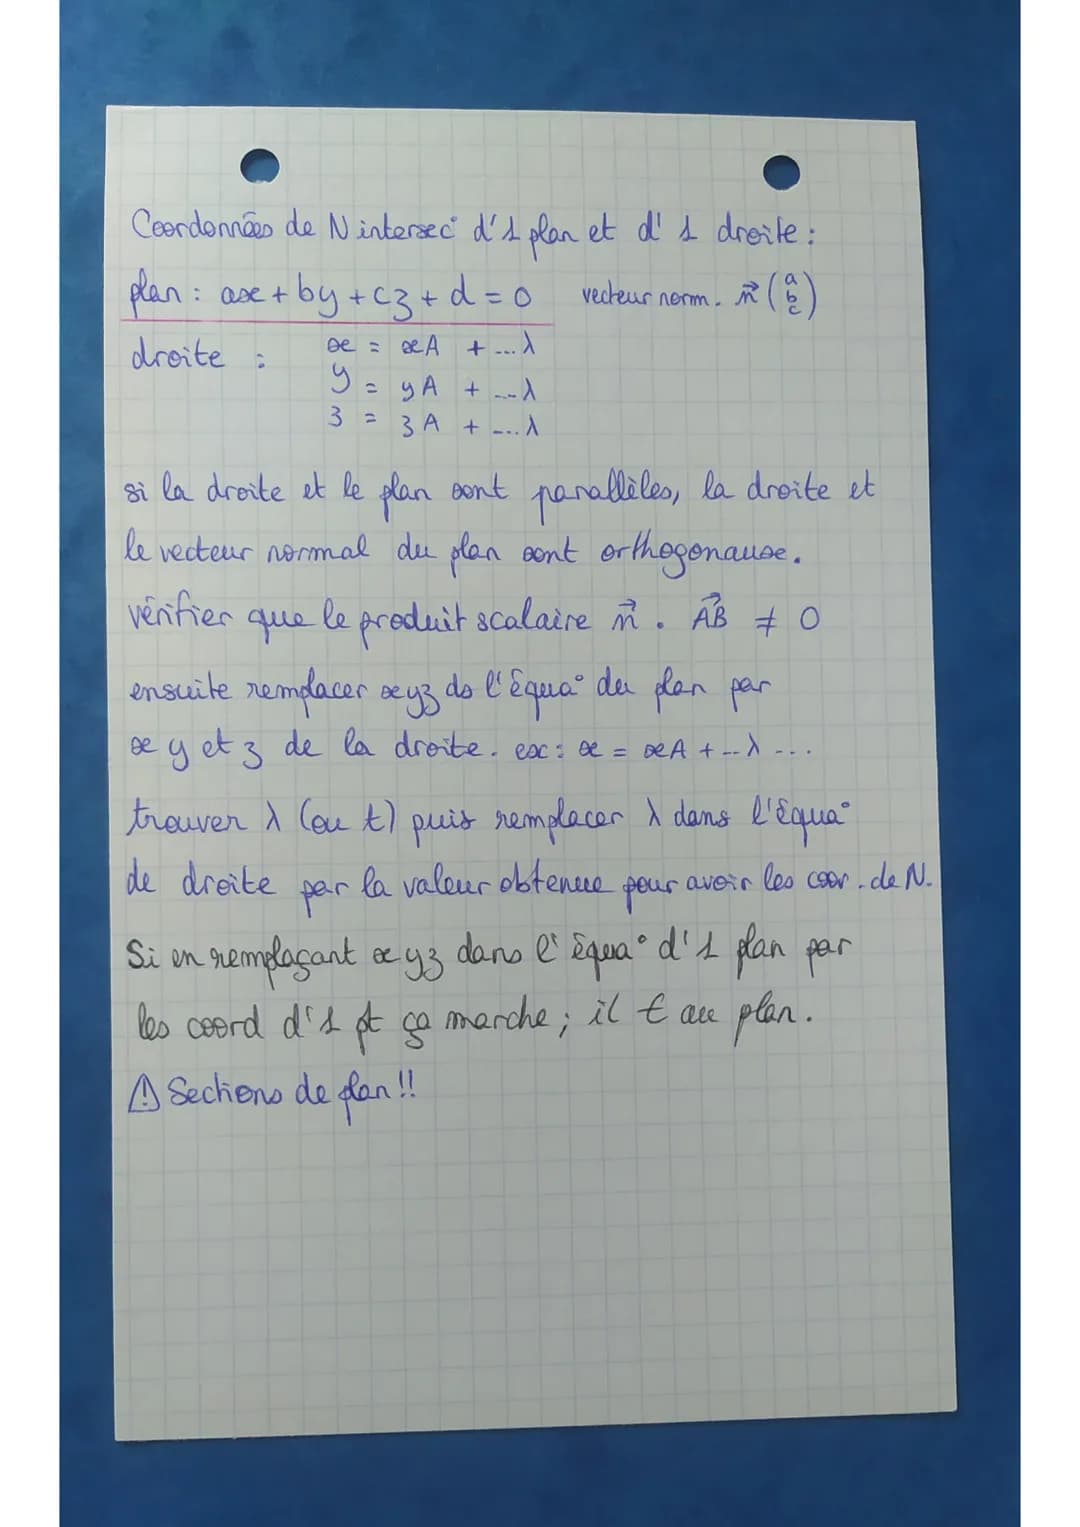 Coordonnées de N intersec° d'1 plan et d'1 droite :
plan : ax + by + cz + d = 0 vecteur norm. n⃗ (a b c)
droite : x = xA + ...λ
y = yA + ...λ
z = zA + ...λ
si la droite et le plan sont parallèles, la droite et
le vecteur normal du plan sont orthogonaux.
vérifier que le produit scalaire n⃗ . AB⃗ ≠ 0
ensuite remplacer xyz ds l'équa° du plan par
x y et z de la droite. ex : x = xA + ...λ ...
trouver λ (ou t) puis remplacer λ dans l'équa°
de droite par la valeur obtenue pour avoir les coor. de N.
Si en remplaçant x yz dans l'équa° d'1 plan par
les coord d'1 pt ça marche ; il ∈ au plan.
⚠ Sections de plan !!